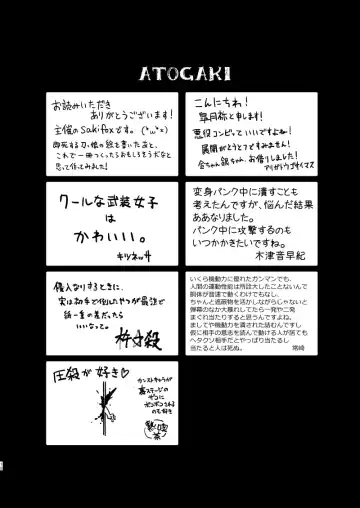 ATOGAKI
お読みいただき
ありがとうございます!
主催のsakifoxです。(*'ω'*)
即死する娘の絵を書いたあと、
これで一冊つくったらおもしろそうだなと
思って作ってみました。
こんにちわ!
皐月弥と申します!
悪役コンビっていいですよね!
展開がとうとつですみません!
金ちゃん銀ちゃん、お借りしました!
アリガトウゴザイマス
クールな武装女子
は
かわいい。
キツネッ4
変身バンク中に潰すことも
考えたんですが、悩んだ結果
ああなりました。
バンク中に攻撃するのも
いつかかきたいですね。
木津音早紀
侵入なりするときに、
実は初手で倒したやつが最強で
紙一重の差だったら
いいなって。
いくら機動力に優れたガンマンでも、
人間の運動性能は所詮大したことないんで
胴体が音速で動くわけでもなし、
ちゃんと遮蔽物を活かしながらじゃないと
弾幕のなか大暴れしてたら一発や二発
まぐれ当たりすると思うんですよね。
ましてや機動力を潰されたら詰むんですし
仮に相手の意志を読んで動く人が居ても
ヘタクソ相手だとやっぱり当たるし
当たると人は死ぬ。
圧殺が好き♡
カンストキャラが
高ステージの
ザコに
ボコボコされる
のも好き